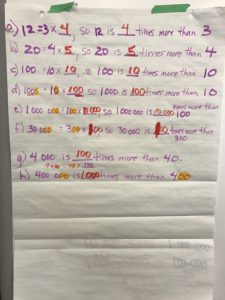 a) 12 = 3 x 4, so 12 is 4 times more than 3
b) 20 = 4 x 5, so 20 is 5 times more than 4
c) 100 = 10 x 10, so 100 is 10 times more than 10
d) 1000 = 10 x 100 so 1000 is 100 times more than 10
e) 1 000 000 = 100 x 10 000 so 1 000 000 is 10,000 times more than 100
f) 30 000 = 300 x 100 so 30 000 is 100 times more than 300
g) 4 000 is 100 times more than 40.
4000 = 40 x 100
h) 400 000 is 1000 times more than 400